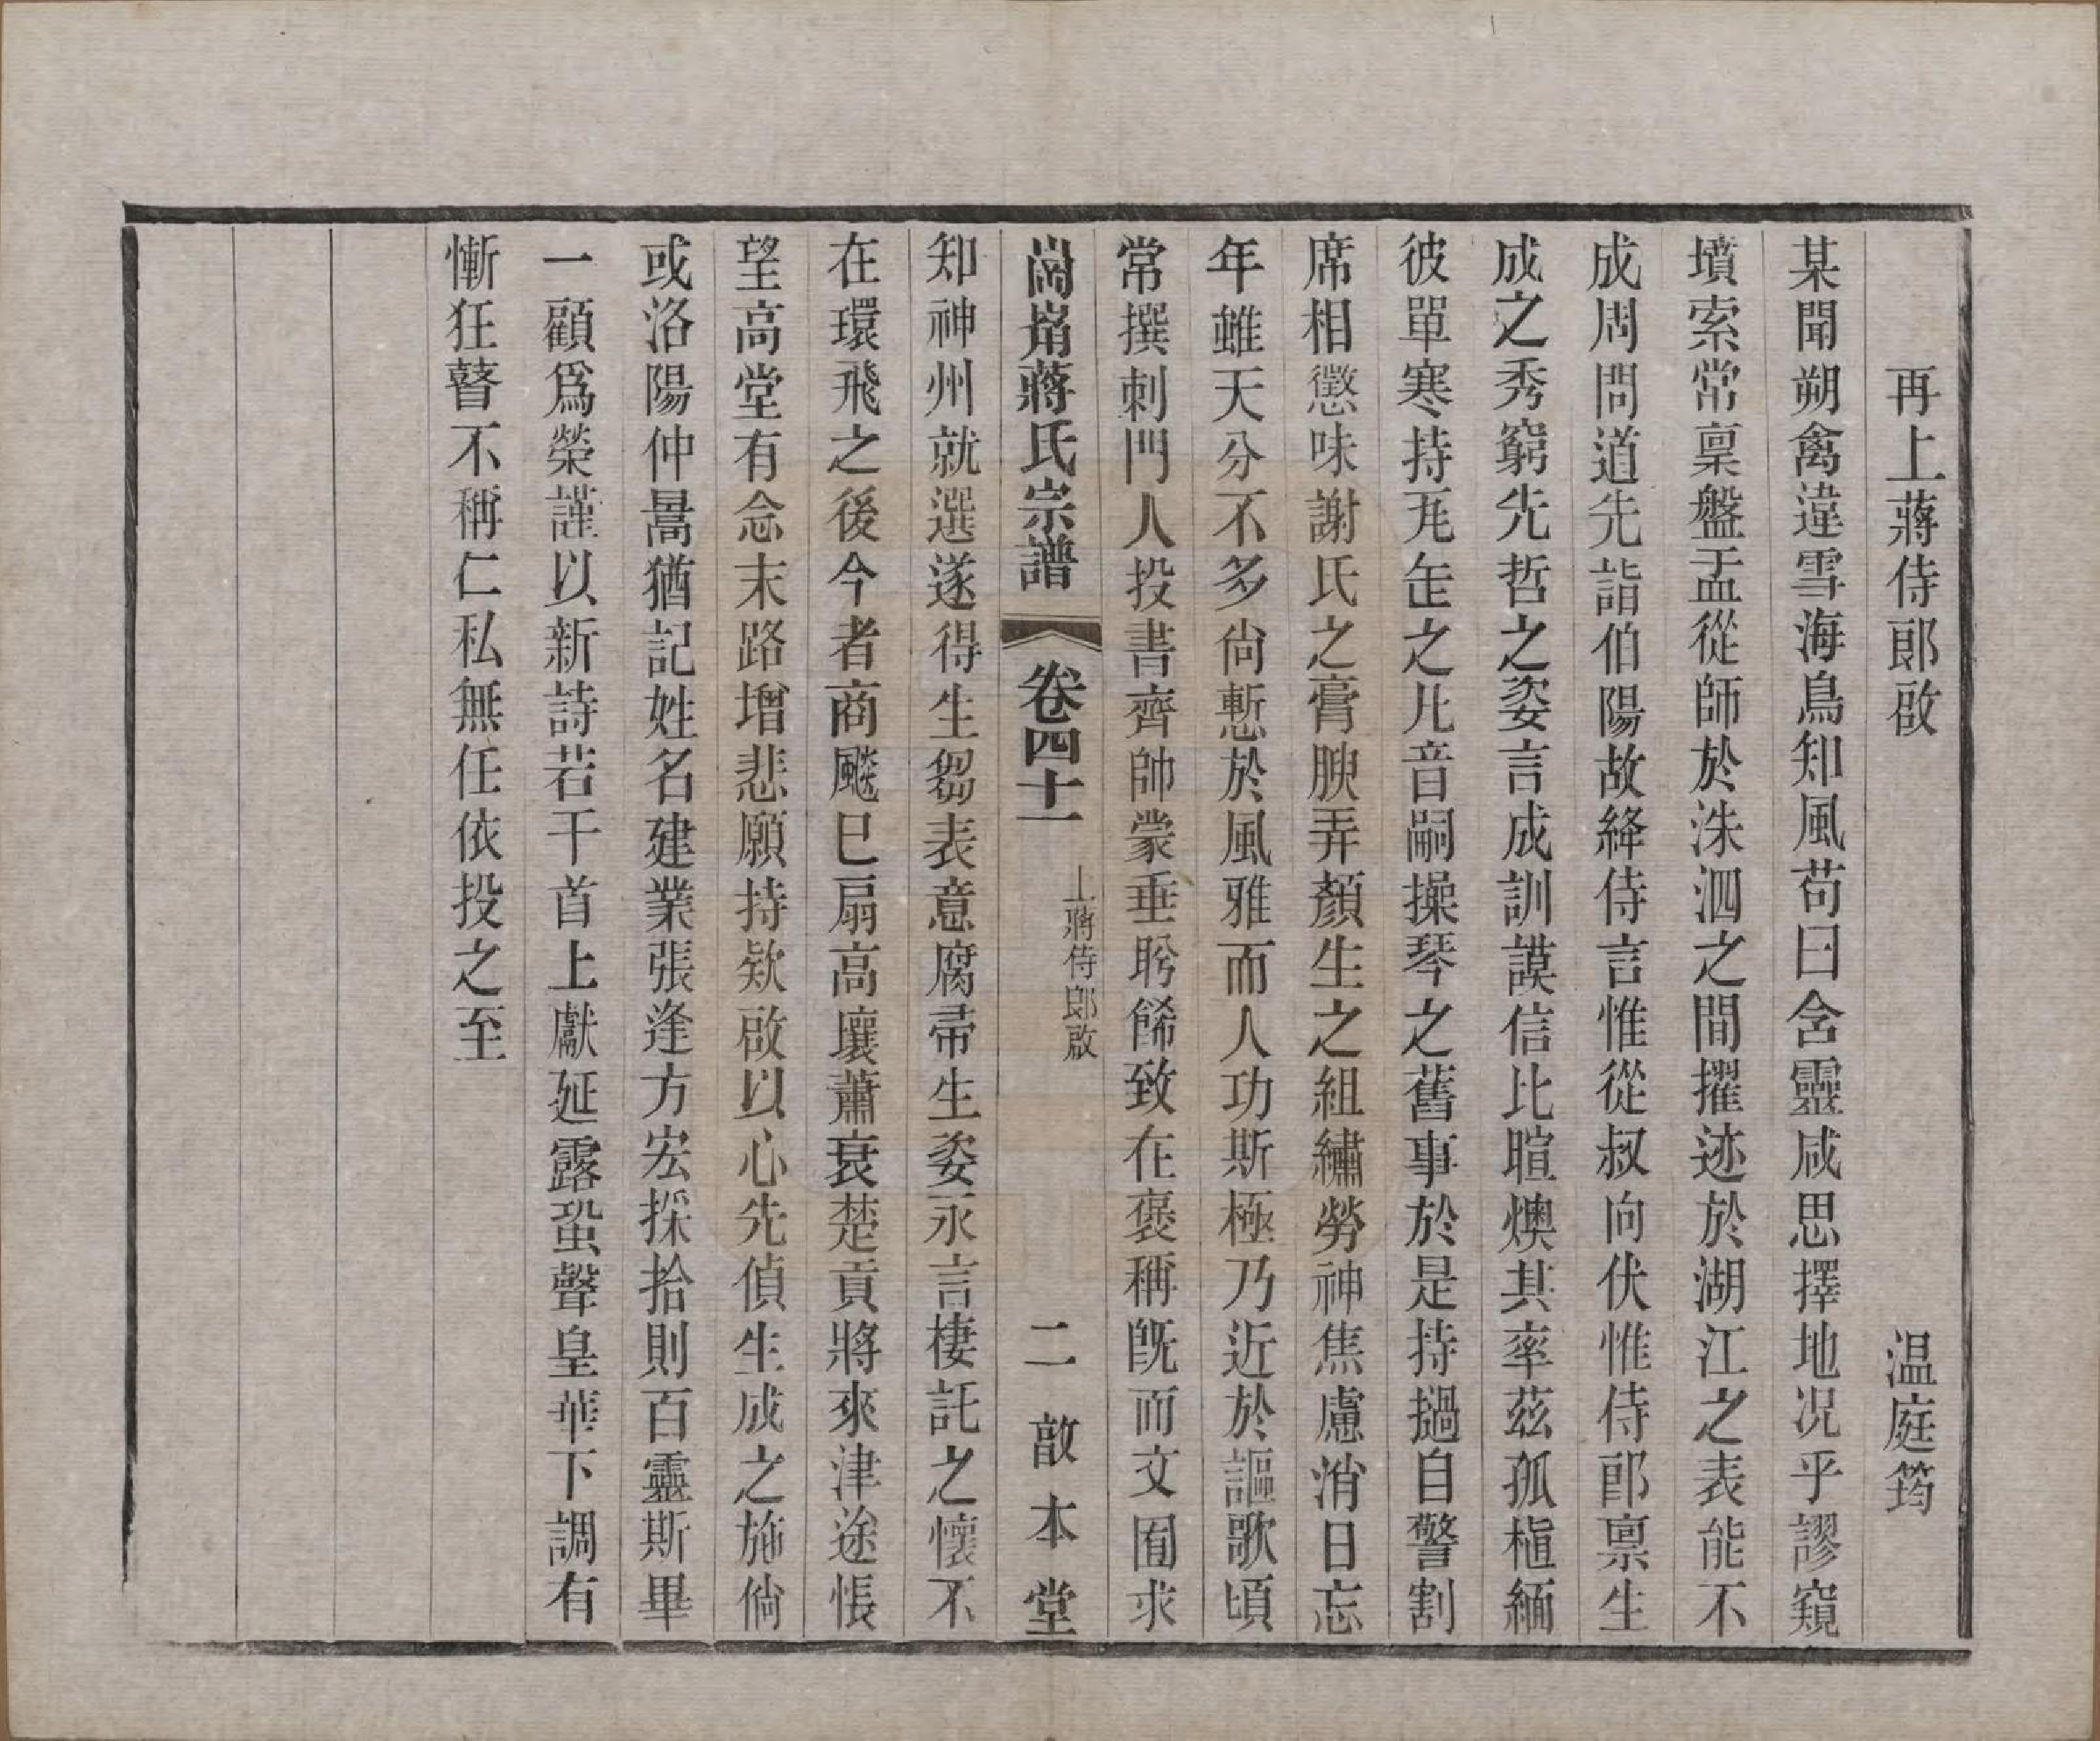 再上蔣侍郎啟　温庭筠
某聞朔禽違雪海鳥知風苟曰含靈咸思擇地况乎謬窺
墳索常稟盤盂從師於洙泗之間擢迹於湖江之表能不
成周問道先詣伯陽故絳侍言惟從叔向伏惟侍郎禀生
成之秀窮先哲之姿言成訓謨信比暄燠其率茲孤植緬
彼單寒持瓦缶之凡音嗣操琴之舊事於是持撾自警割
席相懲味謝氏之膏腴弄顏生之組繡勞神焦慮消日忘
年雖天分不多尙慙於風雅而人功斯極乃近於謳歌頃
常撰刺門人投書齊帥蒙垂肹餙致在褒稱旣而文囿求
啚耑蔣氏宗譜　卷四十一　上蔣侍郎啟　二　敨本堂
知神州就選遂得生芻表意腐帚生姿永言棲託之懷不
在環飛之後今者商飈巳扇高壤蕭衰楚貢將來津途悵
望高堂有念末路增悲願持欵啟以心先偵生成之施倘
或洛陽仲暠猶記姓名建業張逢方宏採拾則百靈斯畢
一顧爲榮謹以新詩若干首上獻延露蛩聲皇華下調有
慚狂瞽不稱仁私無任依投之至